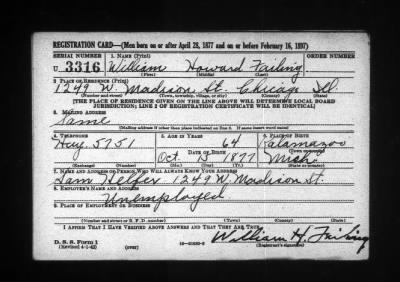 REGISTRATION CARD—(Men born on or after April 28, 1877 and on or before February 16, 1897)
SERIAL NUMBER 1. NAME (Print) ORDER NUMBER
U 3316 William Howard Failing
(First) (Middle) (Last)
2. PLACE OF RESIDENCE (Print)
1249 W. Madison St. Chicago Ill.
(Number and street) (Town, township, village, or city) (County) (State)
[THE PLACE OF RESIDENCE GIVEN ON THE LINE ABOVE WILL DETERMINE LOCAL BOARD
JURISDICTION; LINE 2 OF REGISTRATION CERTIFICATE WILL BE IDENTICAL]
3. MAILING ADDRESS
Same
[Mailing address if other than place indicated on line 2. If same insert word same]
4. TELEPHONE 5. AGE IN YEARS 6. PLACE OF BIRTH
Hay. 5751 64 Kalamazoo
DATE OF BIRTH (Town or county)
Oct. 15 1877 Mich.
(Exchange) (Number) (Mo.) (Day) (Yr.) (State or country)
7. NAME AND ADDRESS OF PERSON WHO WILL ALWAYS KNOW YOUR ADDRESS
Sam 1249 W. Madison St.
8. EMPLOYER'S NAME AND ADDRESS
Unemployed
9. PLACE OF EMPLOYMENT OR BUSINESS
(Number and street or R. F. D. number) (Town) (County) (State)
I AFFIRM THAT I HAVE VERIFIED ABOVE ANSWERS AND THAT THEY ARE TRUE.
D. S. S. Form 1 William H. Failing
(Revised 4-1-42) (over) (Registrant's signature)